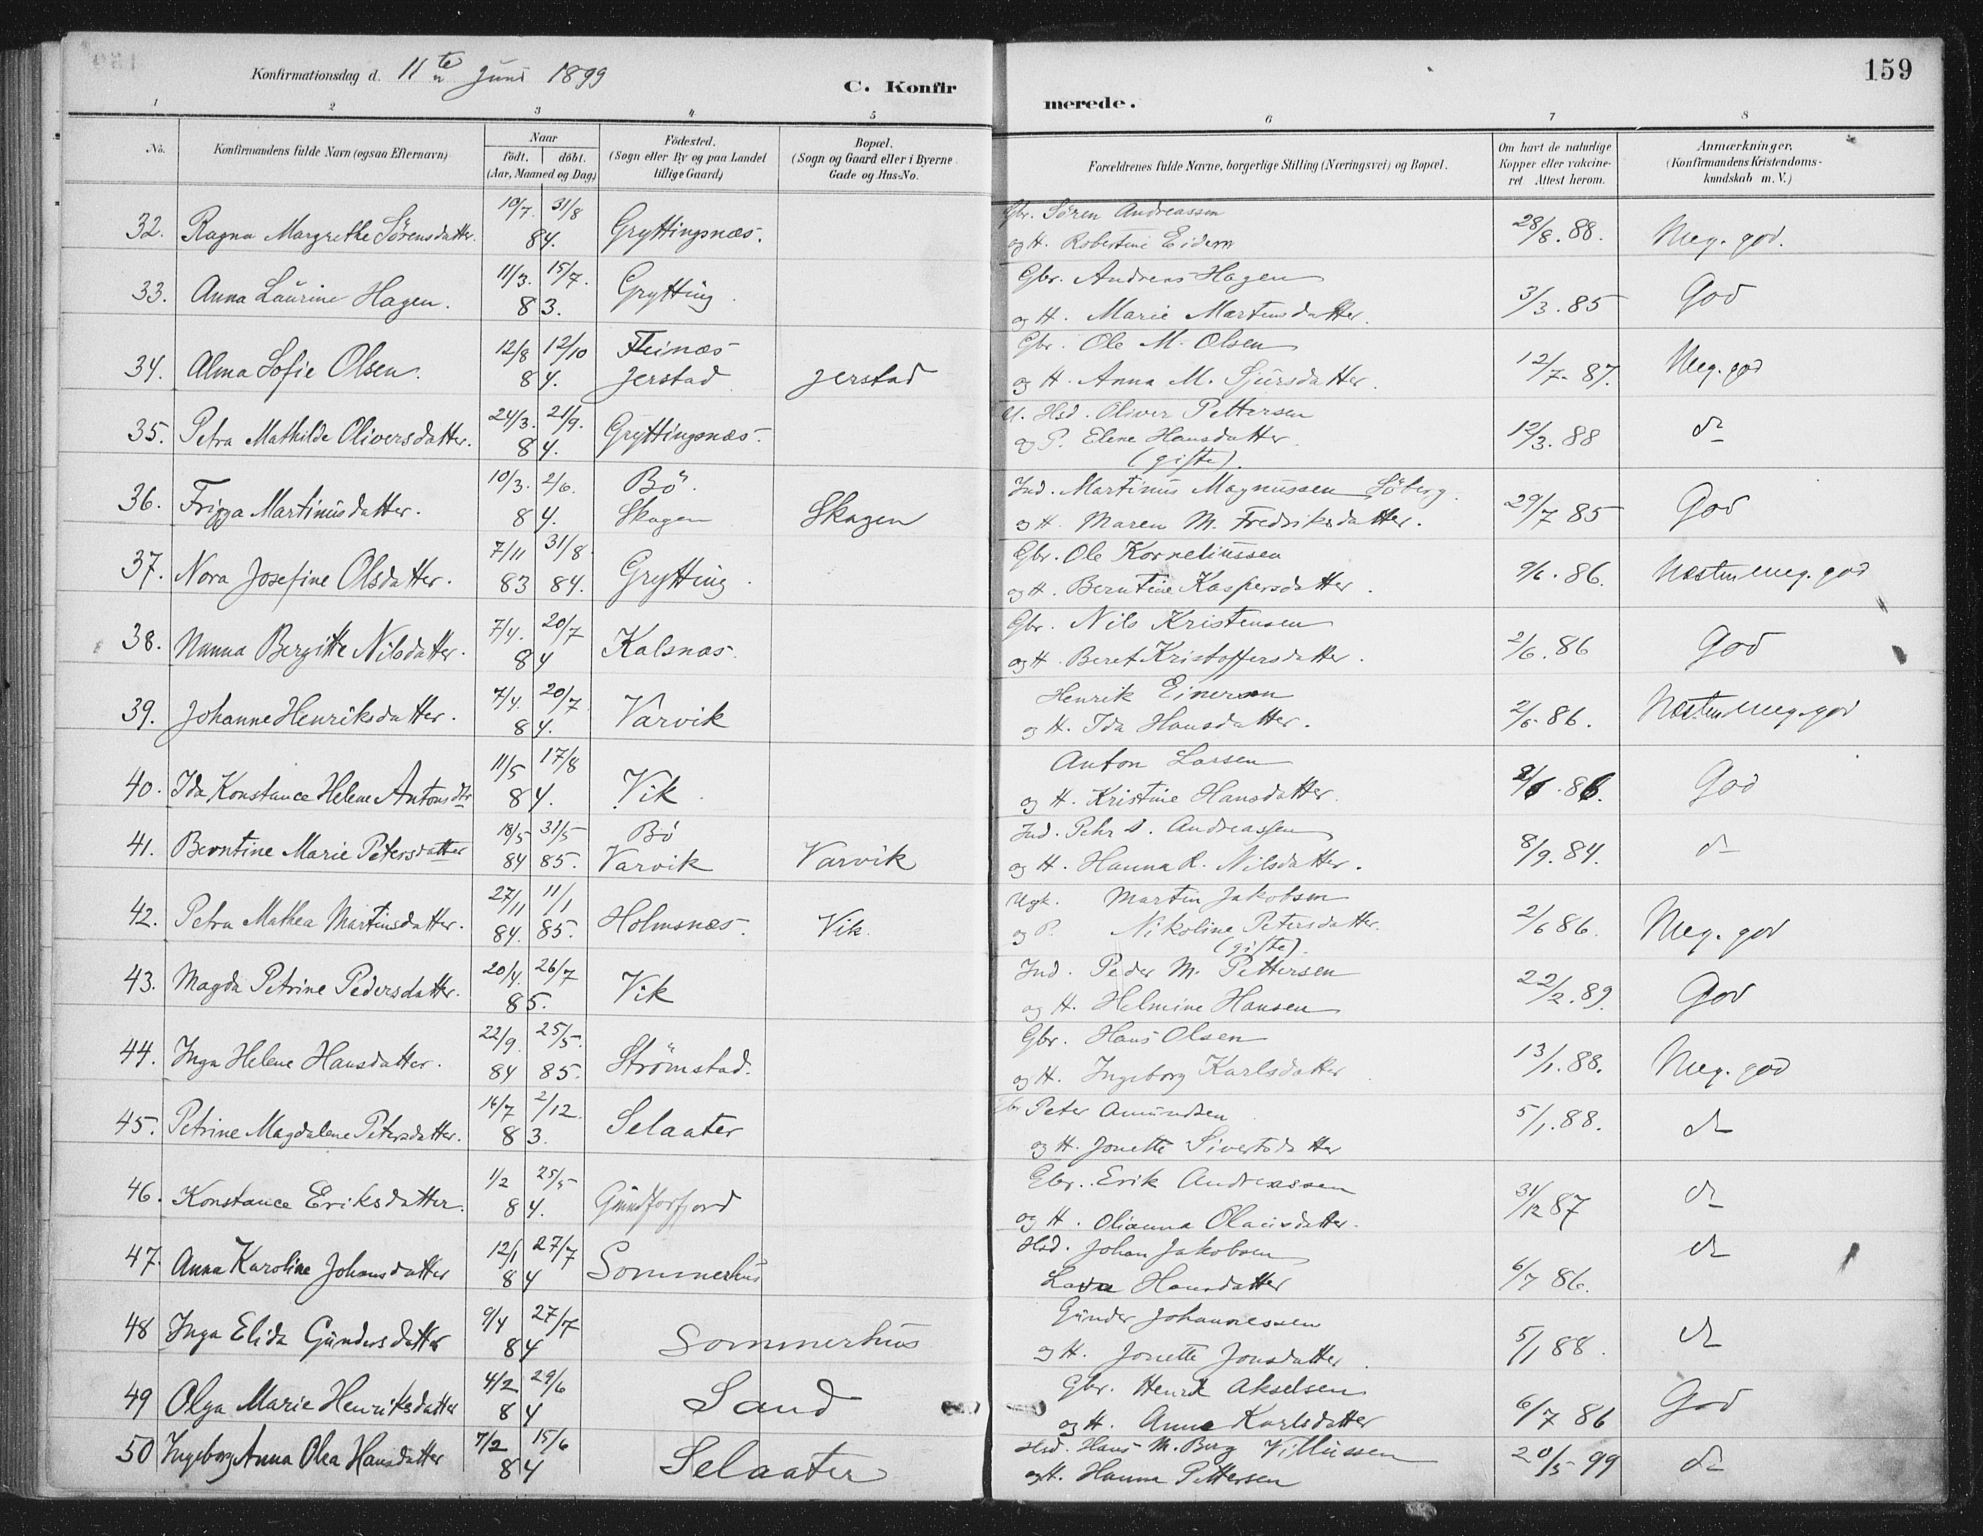 159
Konfirmationsdag d. 11te Juni 1899
C. Konfirmerede.
1 2 3 4 5 6 7 8
No. Konfirmandens fulde Navn (ogsaa Efternavn) Naar födt. döbt. (Aar, Maaned og Dag) Födested. (Sogn eller By og paa Landet tillige Gaard) Bopæl. (Sogn og Gaard eller i Byerne Gade og Hus-No. Forældrenes fulde Navne, borgerlige Stilling (Næringsvei) og Bopæl. Om havt de naturlige Kopper eller vaccineret Attest herom. Anmærkninger. (Konfirmandens Kristendomskundskab m. V.)
32. Ragna Margrethe Sörensdatter. 10/7. 31/8 84. Gryttingsnæs. Gbr. Sören Andreassen og H. Robertine Eidem 28/8. 88. Meg. god.
33. Anna Laurine Hagen. 11/3. 15/7. 83. Grytting. Gbr. Andreas Hagen og H. Marie Martinsdatter. 3/3. 85 God
34. Alma Sofie Olsen. 12/8 12/10 84. Jerstad Jerstad Gbr. Ole M. Olsen og H. Anna M. Sjursdatter. 12/7. 87. Meg. god
35. Petra Mathilde Oliversdatter. 24/3. 21/9. 84. Gryttingsnæs. U. Hsd. Oliver Pettersen og P. Elene Hansdatter. (gifte). 12/3. 88 do
36. Frigga Martinusdatter. 10/3. 2/6. 84. Bö Skagen Skagen Ind. Martinus Magnussen Söberg. og H. Maren M. Fredriksdatter. 29/7 85 God
37. Nora Josefine Olsdatter. 7/11 83 31/8. 84. Grytting. Gbr. Ole Korneliussen og H. Berntine Kaspersdatter. 9/6. 86. Næsten meg. god
38. Nanna Bergitte Nilsdatter. 7/4. 20/7 84 Kalsnæs. Gbr. Nils Kristensen og H. Beret Kristoffersdatter. 2/6. 86 God
39. Johanne Henriksdatter. 7/4. 20/7. 84. Varvik Henrik Einersen og H. Ida Hansdatter. 2/6. 86. Næsten meg. god
40. Ida Konstance Helene Antonsdtr 11/5 17/8 84. Vik. Anton Larsen og H. Kristine Hansdatter. 86. God
41. Berntine Marie Petersdatter 18/5 84 31/5 85. Bö Varvik Varvik Ind. Pehr A. Andreassen og H. Hanna R. Nilsdatter. 8/9. 84. do
42. Petra Mathea Martinsdatter. 27/11 84. 11/1 85. Holmsnæs. Vik. Ugk. Martin Jakobsen og P. Nikoline Petersdatter. (gifte). 2/6 86. Meg. god
43. Magda Petrine Pedersdatter. 20/4. 26/7 85. Vik Ind. Peder M. Pettersen og H. Helmine Hansen 22/2. 89. God
44. Inga Helene Hansdatter. 22/9. 84 25/5. 85. Strömstad. Gbr. Hans Olsen og H. Ingeborg Karlsdatter 13/1. 88. Meg. god
45. Petrine Magdalene Petersdatter. 14/7 2/12. 83. Selaater Gbr Peter Amundsen og H. Jonette Sivertsdatter 5/1. 88. do
46. Konstance Eriksdatter. 1/2 25/5 84. Gundforfjord Gbr. Erik Andreassen og H. Olianna Olausdatter. 31/12 87 do
47. Anna Karoline Johansdatter 12/1 27/7 84 Sommerhus Hsd. Johan Jakobsen Hansdatter 6/7 86. do
48 Inga Elida Gundersdatter 9/4 27/7 84 Sommerhus Gunder Johannessen og H. Jonette Jonsdatter. 5/1 88. do
49 Olga Marie Henriksdatter 4/2 29/6 84 Sand Gbr. Henrik Akselsen og H. Anne Karlsdatter 6/7 86 God
50 Ingeborg Anna Olea Hansdatter 7/2 15/6 84 Selaater Hsd. Hans M. Berg Villussen og H. Hanna Pettersen 20/5 99 do